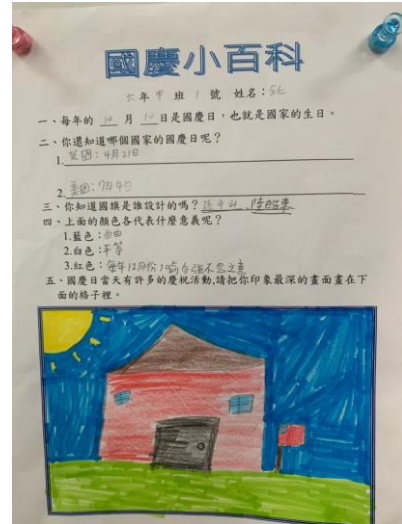 國慶小百科
六年甲班1號 姓名：
一、每年的 10 月 10 日是國慶日，也就是國家的生日。
二、你還知道哪個國家的國慶日呢？
1. 英國：4月21日
2. 美國：7月4日
三、你知道國旗是誰設計的嗎？孫中山、陸皓東
四、上面的顏色各代表什麼意義呢？
1.藍色：自由
2.白色：平等
3.紅色：
五、國慶日當天有許多的慶祝活動,請把你印象最深的畫面畫在下
面的格子裡。